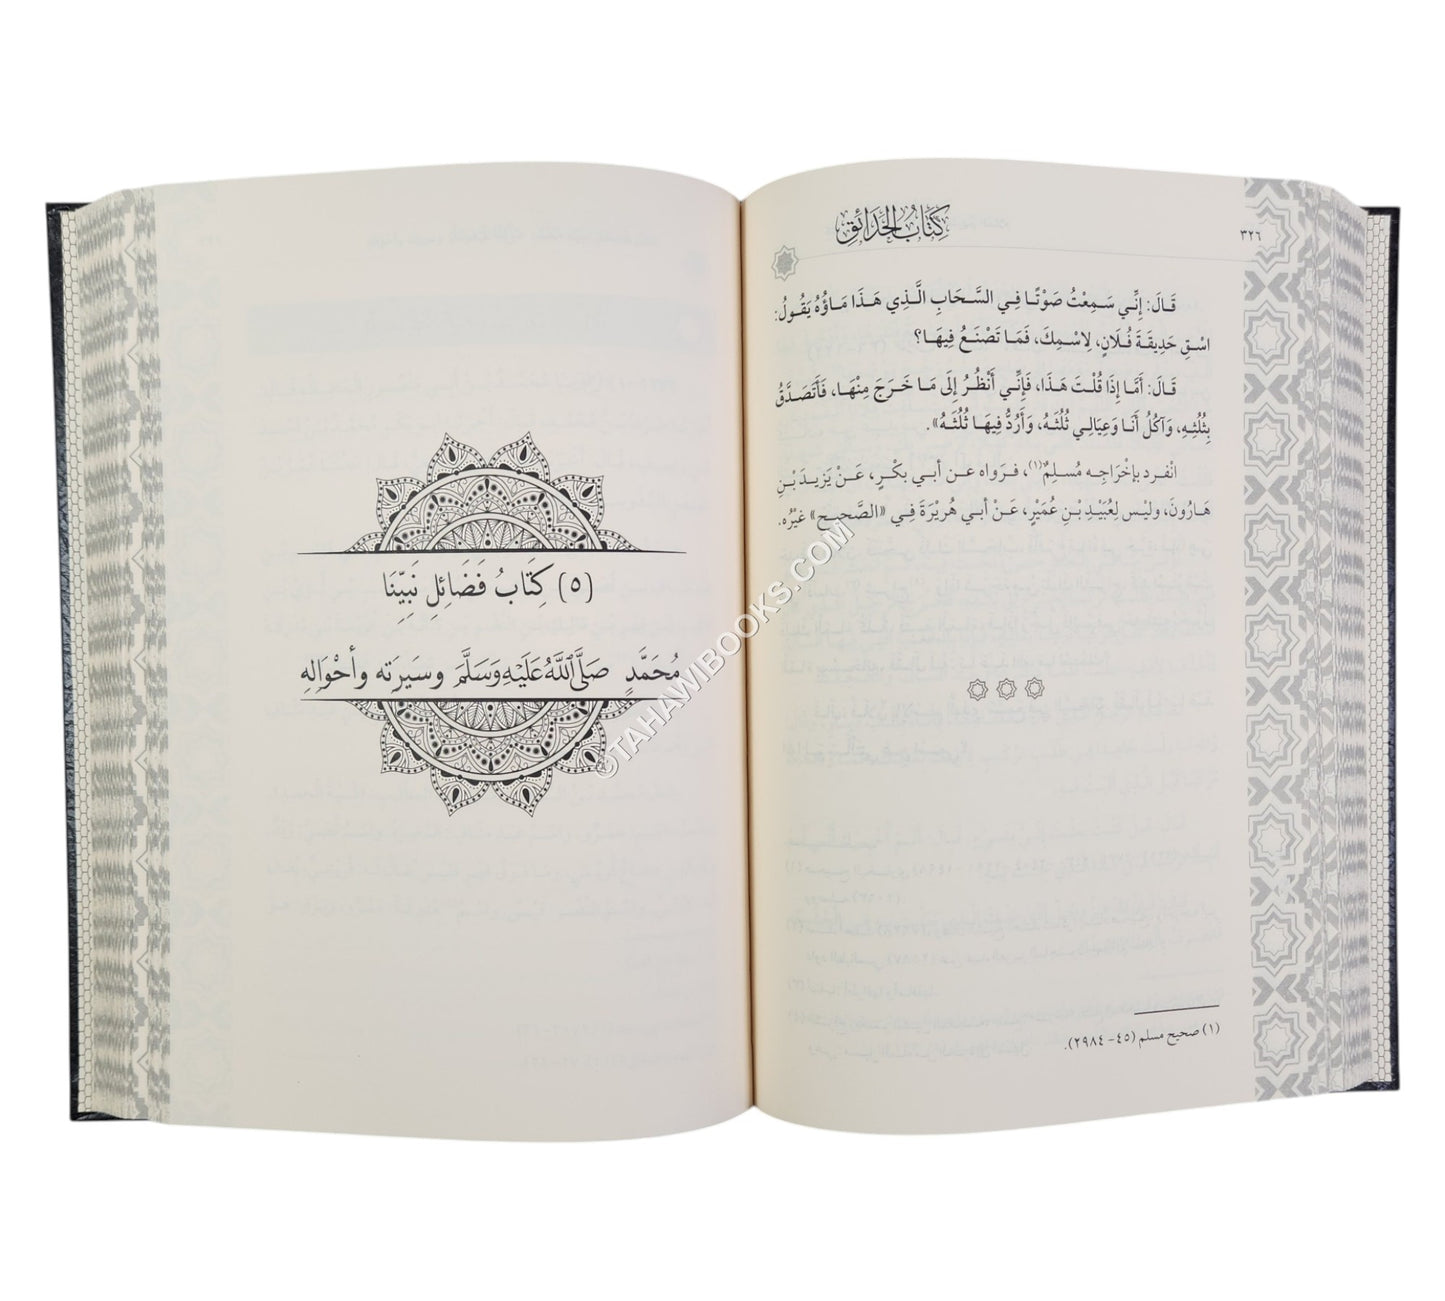 ٣٢٦
كِتَابُ الحَدَائِق
قَالَ: إِنِّي سَمِعْتُ صَوْتًا فِي السَّحَابِ الَّذِي هَذَا مَاؤُهُ يَقُولُ:
اسْقِ حَدِيقَةَ فُلَانٍ، لِاسْمِكَ، فَمَا تَصْنَعُ فِيهَا؟
قَالَ: أَمَّا إِذَا قُلْتَ هَذَا، فَإِنِّي أَنْظُرُ إِلَى مَا خَرَجَ مِنْهَا، فَأَتَصَدَّقُ
بِثُلُثِهِ، وَآكُلُ أَنَا وَعِيَالِي ثُلُثَهُ، وَأَرُدُّ فِيهَا ثُلُثَهُ».
انْفرد بإخْرَاجِه مُسلِمٌ(١)، فرَواه عن أبي بكْرٍ، عَنْ يَزِيدَ بْنِ
هَارُونَ، وليْس لِعُبَيْدِ بْنِ عُمَيْرٍ، عَنْ أبي هُريْرَةَ فِي «الصَّحيح» غيْرُه.
(١) صحيح مسلم (٤٥- ٢٩٨٤).
(٥) كِتَابُ فَضَائِلِ نَبِيِّنَا
مُحَمَّدٍ صَلَّى اللَّهُ عَلَيْهِ وَسَلَّمَ وسَيرَتِه وأحْوَالِهِ
©TAHAWIBOOKS.COM